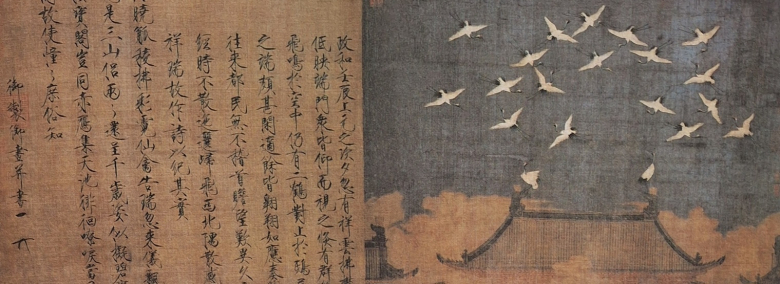 政和壬辰上元之次夕忽有祥雲拂
低映端門眾皆仰而視之倏有群
飛鳴於空中仍有二鶴對止於鴟
之端頗甚閑適餘皆翱翔如應奏
往來都民無不稽首瞻望歎異久
經時不散迤邐歸飛西北隅散
祥瑞故作詩以紀其實
曉觚稜拂彩霓仙禽告瑞忽來儀飄
元是三山侶兩〻還呈千歲姿似擬碧
寶閣豈同赤雁集天池徘徊嘹唳當
故使憧〻庶俗知
御製御畫并書